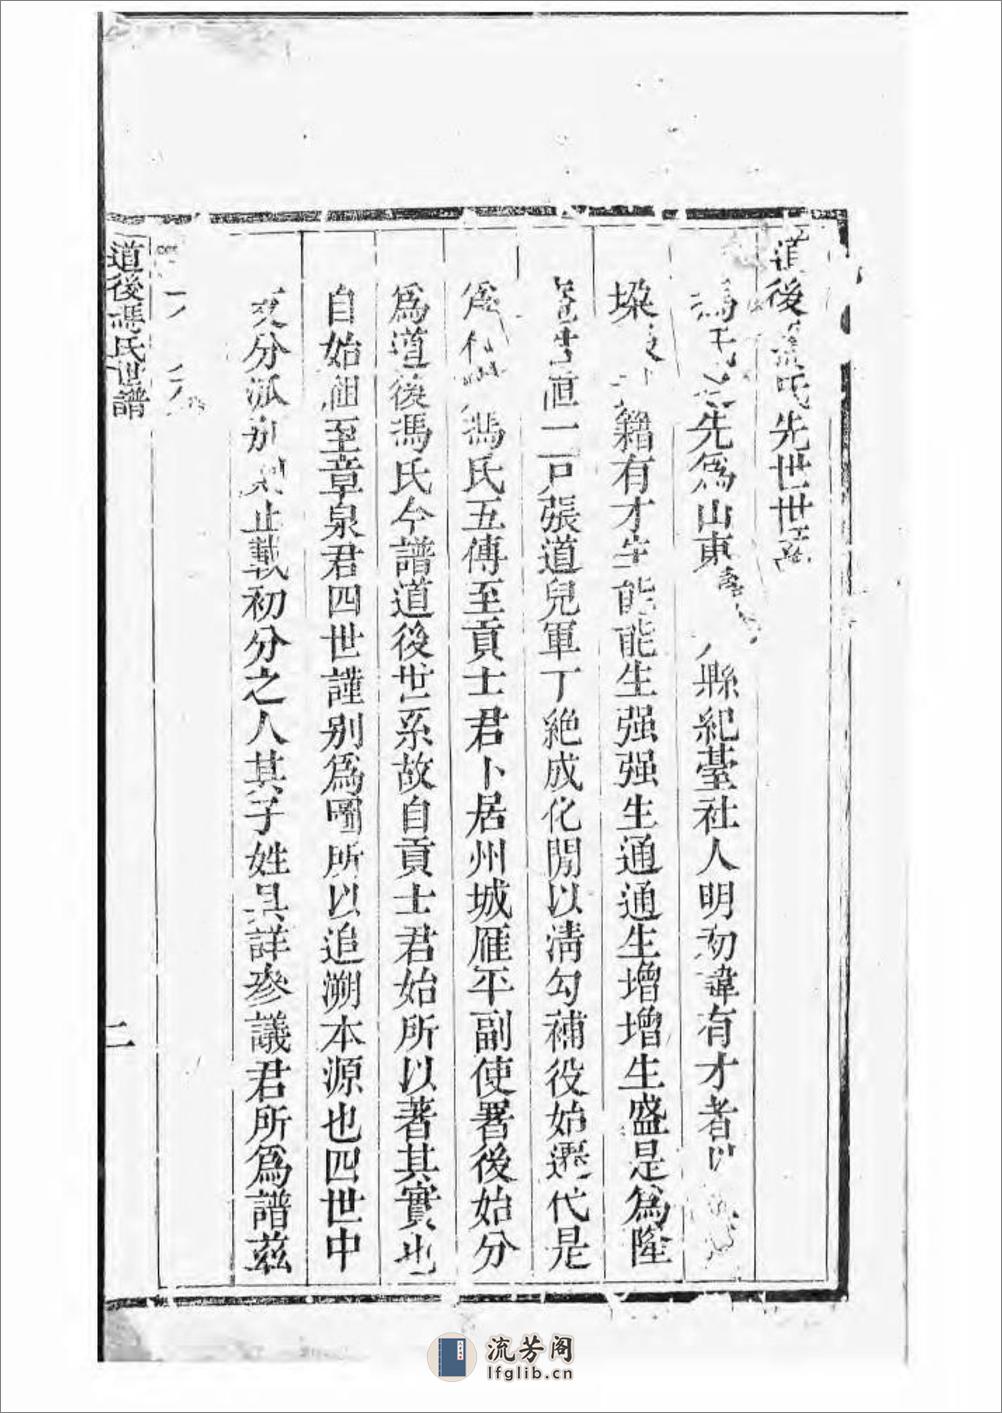 道後馮氏先世世系
馮氏之先爲山東縣紀臺社人明初諱有才者以
垛籍有才生能能生强强生通通生增增生盛是爲隆
直一戸張道兒軍丁絶成化間以清勾補役始遷代是
爲代馮氏五傳至貢士君卜居州城雁平副使署後始分
爲道後馮氏今譜道後世系故自貢士君始所以著其實也
自始祖至章泉君四世謹别爲圖所以追溯本源也四世中
支分派别止載初分之人其子姓具詳參議君所爲譜茲
道後馮氏世譜
二
流芳阁
lfglib.cn